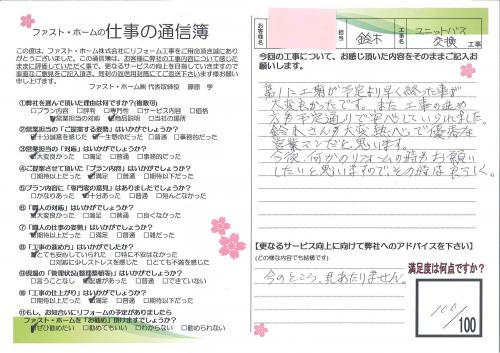 ファスト・ホームの仕事の通信簿
この度は、ファスト・ホーム株式会社にリフォーム工事をご用命頂き誠にあり
がとうございました。この通信簿は、お客様に弊社の工事内容について感じた
ままに評価していただく事で、更なるサービスの向上を目指していきますので
率直なご意見をご記入頂き、別封の返信用封筒にてご返送下さいます様お願い
申し上げます。
ファスト・ホーム㈱ 代表取締役 藤原 学
①弊社を選んで頂いた理由は何ですか?(複数可)
□プラン内容 □評判 □専門性 □サービス内容 □価格
☑営業担当の対応 ☑商品説明 □当社の場所
②営業担当の「ご提案する姿勢」はいかがでしたか?
☑十分誠意を感じた □一生懸命だった □普通 □事務的だった
③営業担当の「対応」はいかがでしたか?
☑大変良かった □満足 □普通 □事務的だった
④ご提案させて頂いた「プラン内容」はいかがでしたか?
□期待以上だった ☑満足 □普通 □期待以下だった
⑤プラン内容に「専門家の意見」はありましたでしょうか?
□かなりあった ☑十分あった □普通 □殆んどなかった
⑥「職人の対応」はいかがでしたでしょうか?
☑大変良かった □満足 □普通 □良くなかった
⑦「職人の仕事の姿勢」はいかがでしたでしょうか?
☑期待以上だった □満足 □普通 □雑だった
⑧「工事の進め方」はいかがでしたか?
☑とても安心していられた □特に不安はなかった
□対応に少しストレスを感じた □とても不満を感じた
⑨現場の「管理状況(整理整頓等)」はいかがでしたか?
□言うことなし ☑配慮があった □普通 □できていない
⑩「工事の仕上がり」はいかがでしょうか?
□期待以上だった ☑満足 □普通 □期待以下だった
⑪もし、お知り合いにリフォームの予定がありましたら
ファスト・ホームを「お勧め」頂けますでしょうか?
☑ぜひ勧めたい □勧めてもいい □わからない □勧められない
お客様名
担当
鈴木
工事名
ユニットバス
交換
工事
今回の工事について、お感じ頂いた内容をそのままご記入お
願いします。
第1に工期が予定より早く終った事が
大変良かったです。また工事の進め
方も予定通りで安心していられました。
鈴木さんも大変熱心で優秀な
営業マンだと思います。
今後、何かのリフォームの時もお願い
したいと思いますので、その時は良ろしく。
【更なるサービス向上に向けて弊社へのアドバイスを下さい】
(どの様な内容でも結構です)
今のところ、見あたりません。
満足度は何点ですか?
100/
100